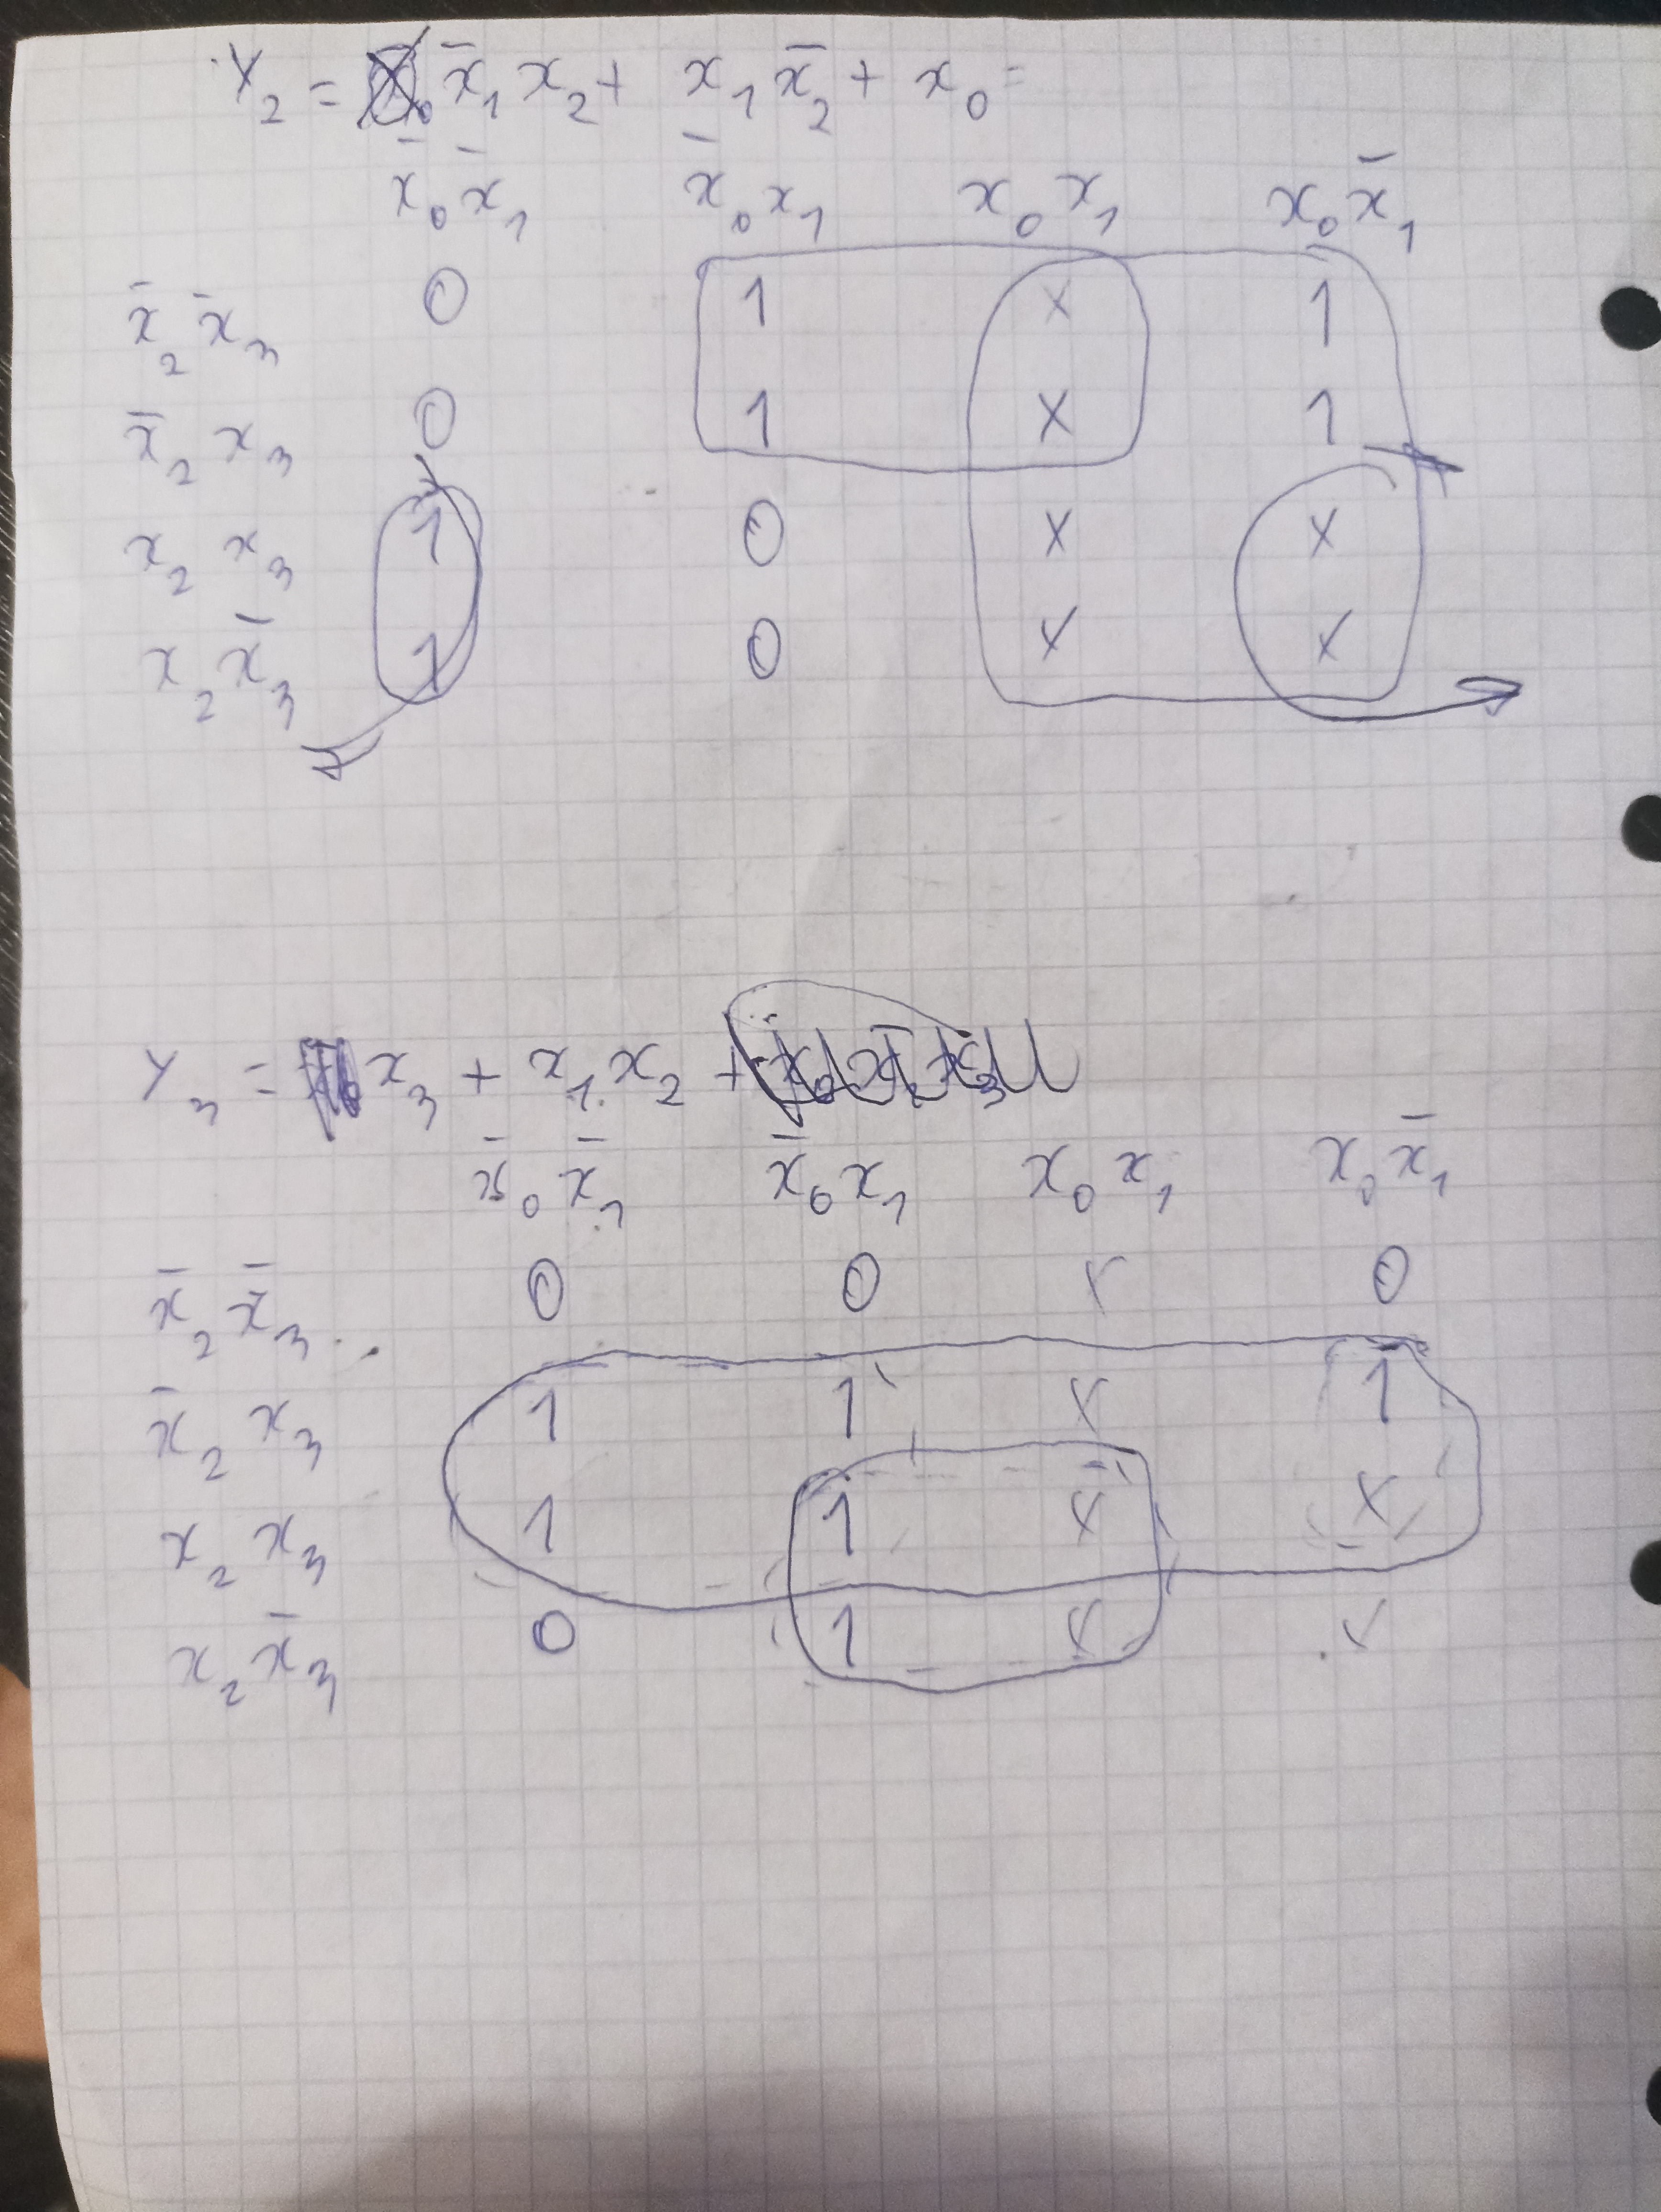 Y₂ = x̄₁ x₂ + x₁ x̄₂ + x₀ =
x̄₀ x̄₁ x̄₀ x₁ x₀ x₁ x₀ x̄₁
x̄₂ x̄₃ 0 1 x 1
x̄₂ x₃ 0 1 x 1
x₂ x₃ 1 0 x x
x₂ x̄₃ 1 0 x x
Y₃ = x₃ + x₁ x₂ +
x̄₀ x̄₁ x̄₀ x₁ x₀ x₁ x₀ x̄₁
x̄₂ x̄₃ 0 0 x 0
x̄₂ x₃ 1 1 x 1
x₂ x₃ 1 1 x x
x₂ x̄₃ 0 1 x x